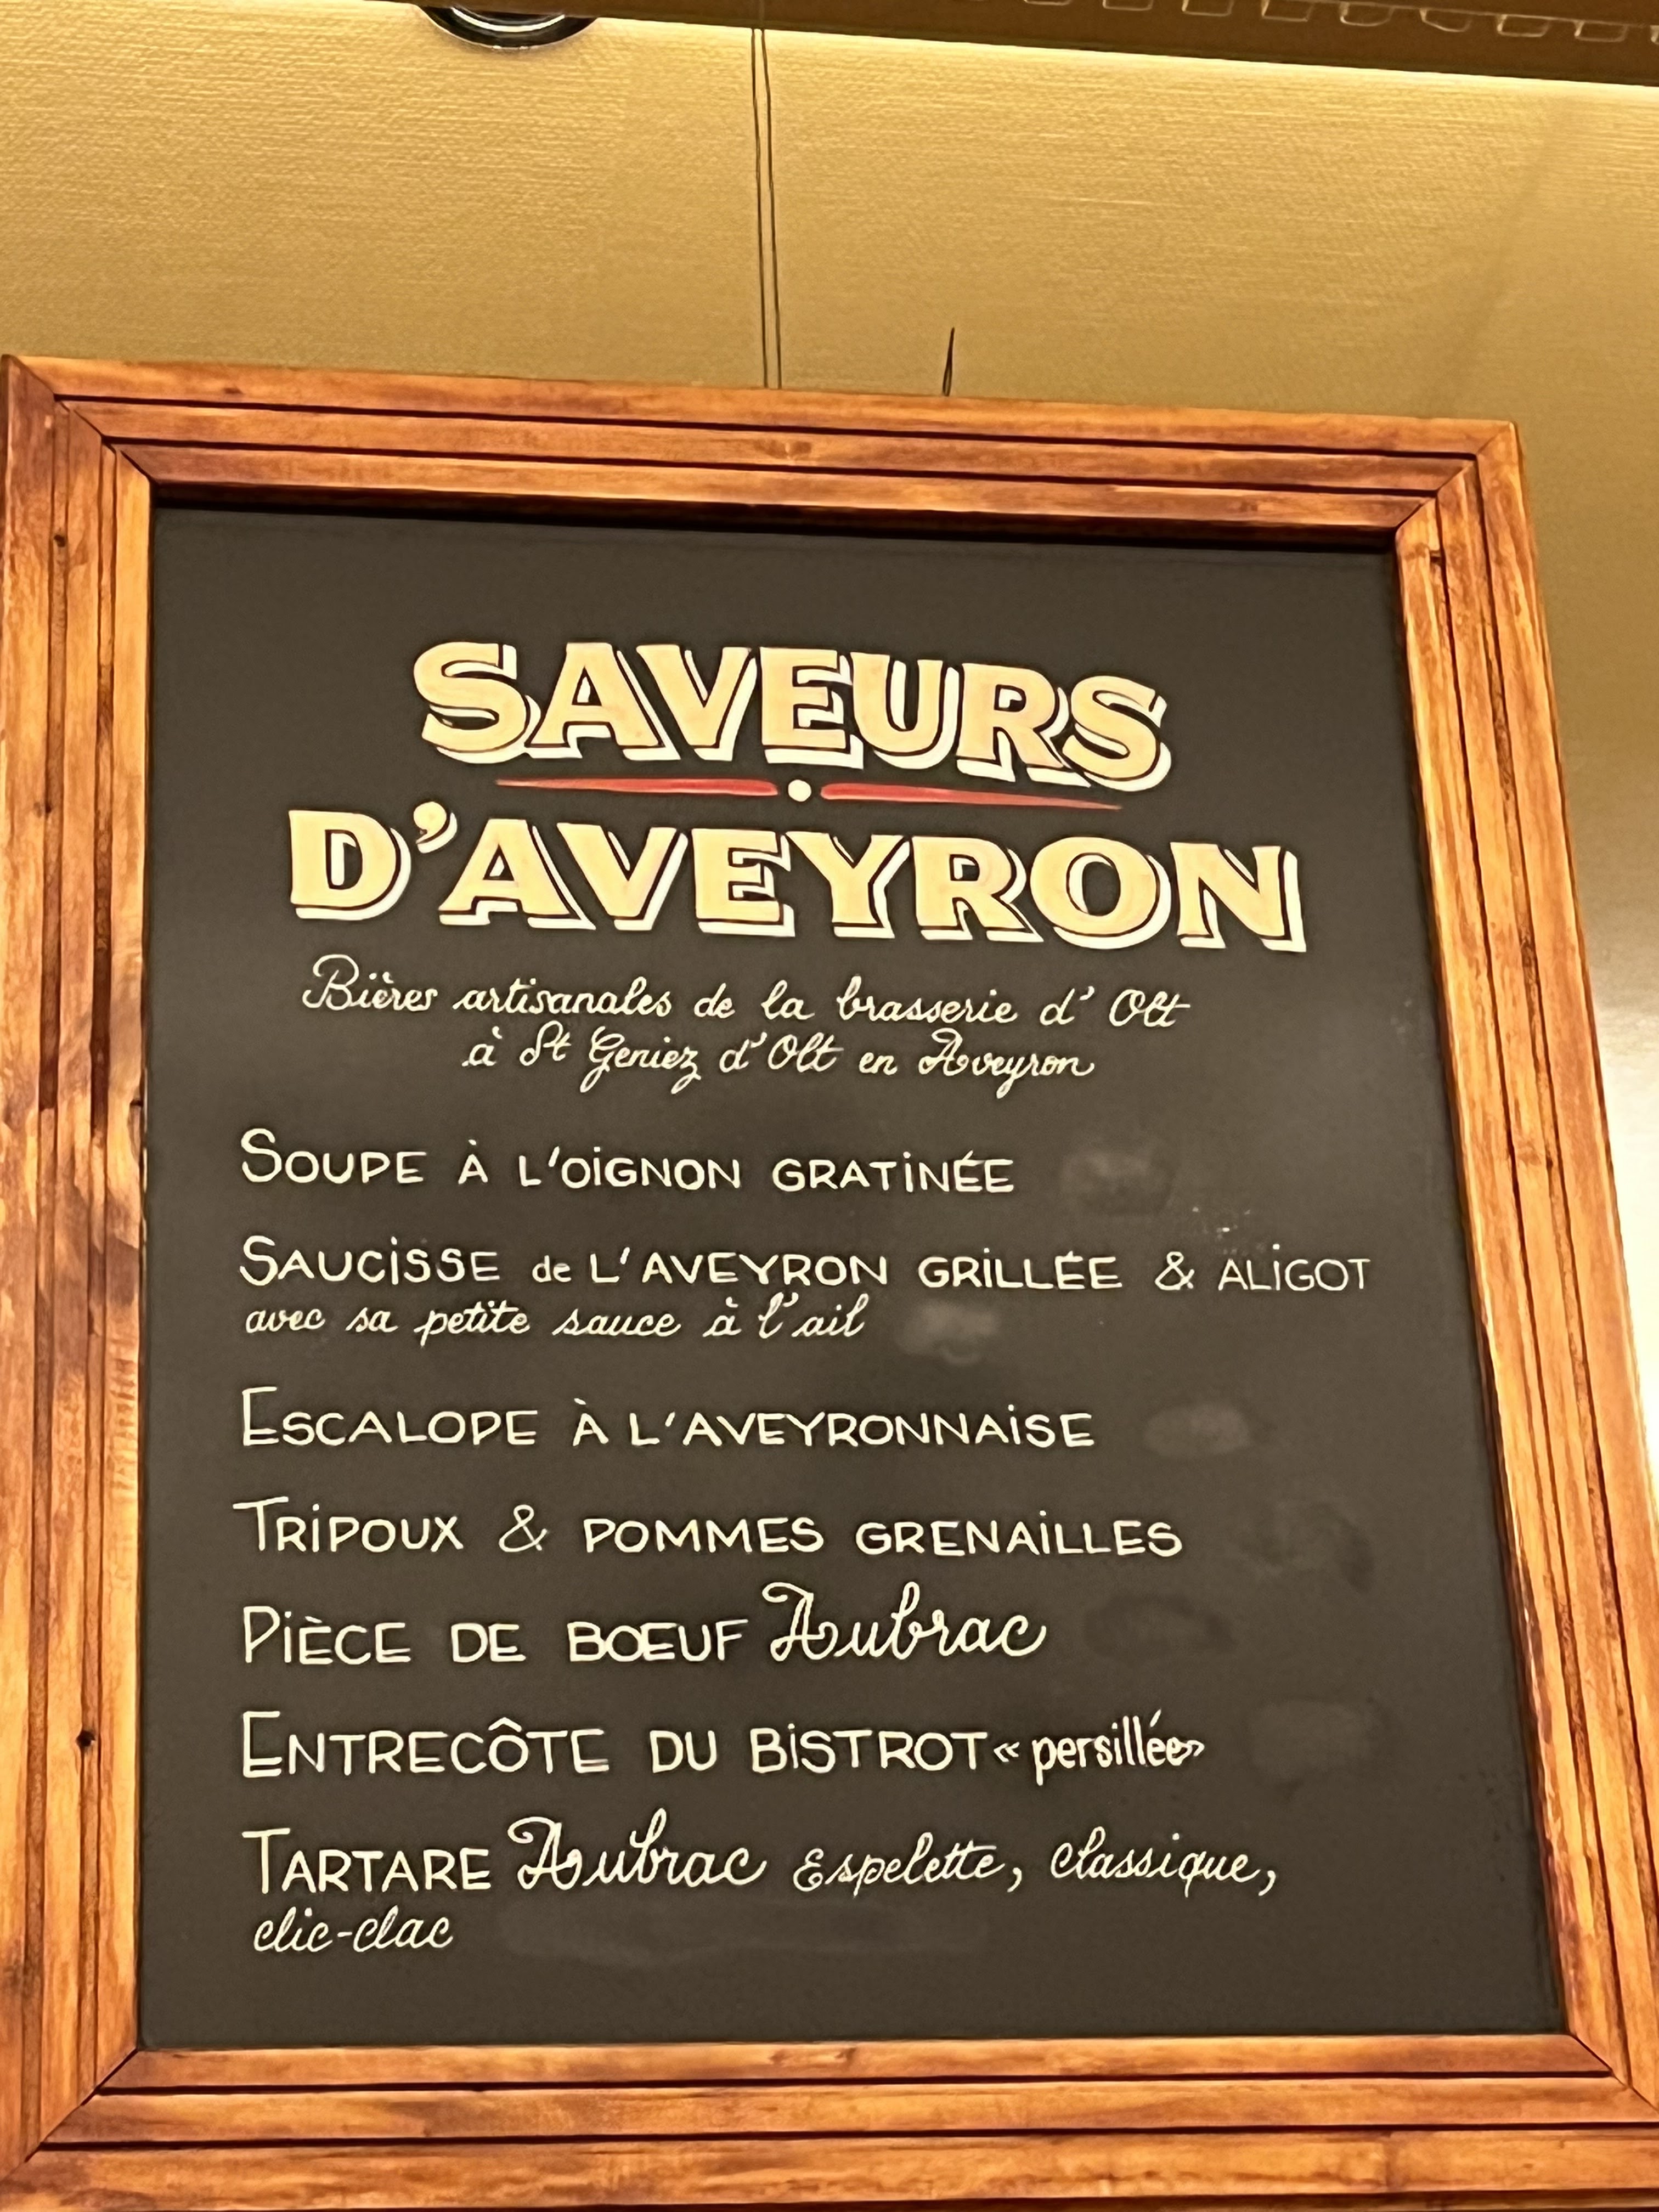 SAVEURS
D'AVEYRON
Bières artisanales de la brasserie d' Olt
à St Geniez d'Olt en Aveyron
SOUPE À L'OIGNON GRATINÉE
SAUCISSE de L'AVEYRON GRILLÉE & ALIGOT
avec sa petite sauce à l'ail
ESCALOPE À L'AVEYRONNAISE
TRIPOUX & POMMES GRENAILLES
PIÈCE DE BOEUF Aubrac
ENTRECÔTE DU BISTROT « persillée »
TARTARE Aubrac Espelette, classique,
clic-clac